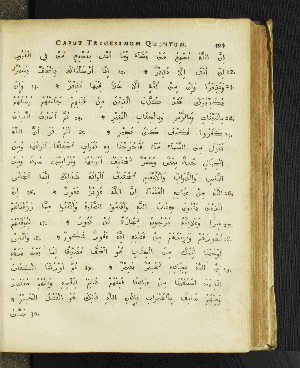 CAPUT TRIGESIMUM QUINTUM.
ان الله يسمع من يشاء وما انت بمسمع من في القبور
ان انت الا نذير * انا ارسلناك بالحق بشيرا
ونذيرا وان من امة الا خلا فيها نذير * وان
يكذبوك فقد كذب الذين من قبلهم جاءتهم رسلهم
بالبينات وبالزبر وبالكتاب المنير * ثم اخذت الذين
كفروا فكيف كان نكير * الم تر ان الله
انزل من السماء ماء فاخرجنا به ثمرات مختلفا الوانها ومن
الجبال جدد بيض وحمر مختلف الوانها وغرابيب سود ومن
الناس والدواب والانعام مختلف الوانه كذلك انما يخشى
الله من عباده العلماء ان الله عزيز غفور * ان
الذين يتلون كتاب الله واقاموا الصلاة وانفقوا مما رزقناهم
سرا وعلانية يرجون تجارة لن تبور * ليوفيهم
اجورهم ويزيدهم من فضله انه غفور شكور * والذي
اوحينا اليك من الكتاب هو الحق مصدقا لما بين يديه
ان الله بعباده لخبير بصير * ثم اورثنا الكتاب
الذين اصطفينا من عبادنا فمنهم ظالم لنفسه ومنهم مقتصد
ومنهم سابق بالخيرات باذن الله ذلك هو الفضل الكبير *
جنات